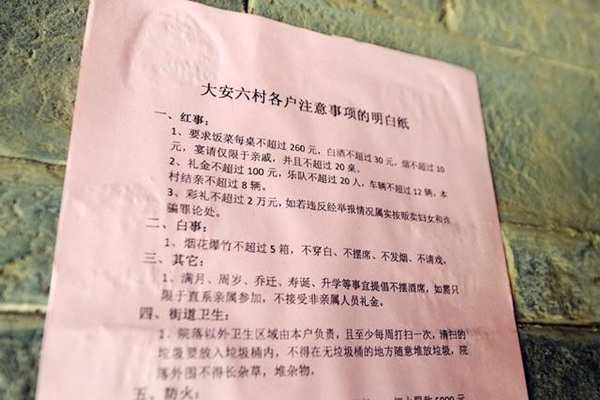 大安六村各户注意事项的明白纸
一、红事：
1、要求饭菜每桌不超过 260 元，白酒不超过 30 元，烟不超过 10
元，宴请仅限于亲戚，并且不超过 20 桌。
2、礼金不超过 100 元，乐队不超过 20 人，车辆不超过 12 辆，本
村结亲不超过 8 辆。
3、彩礼不超过 2 万元，如若违反经举报情况属实按贩卖妇女和诈
骗罪论处。
二、白事：
1、烟花爆竹不超过 5 箱，不穿白、不摆席、不发烟、不请戏。
三、其它：
1、满月、周岁、乔迁、寿诞、升学等事宜提倡不摆酒席，如需只
限于直系亲属参加，不接受非亲属人员礼金。
四、街道卫生：
1、院落以外卫生区域由本户负责，且至少每周打扫一次，清扫的
垃圾要放入垃圾桶内，不得在无垃圾桶的地方随意堆放垃圾，院
落外围不得长杂草，堆杂物。
五、防火：
5000 元